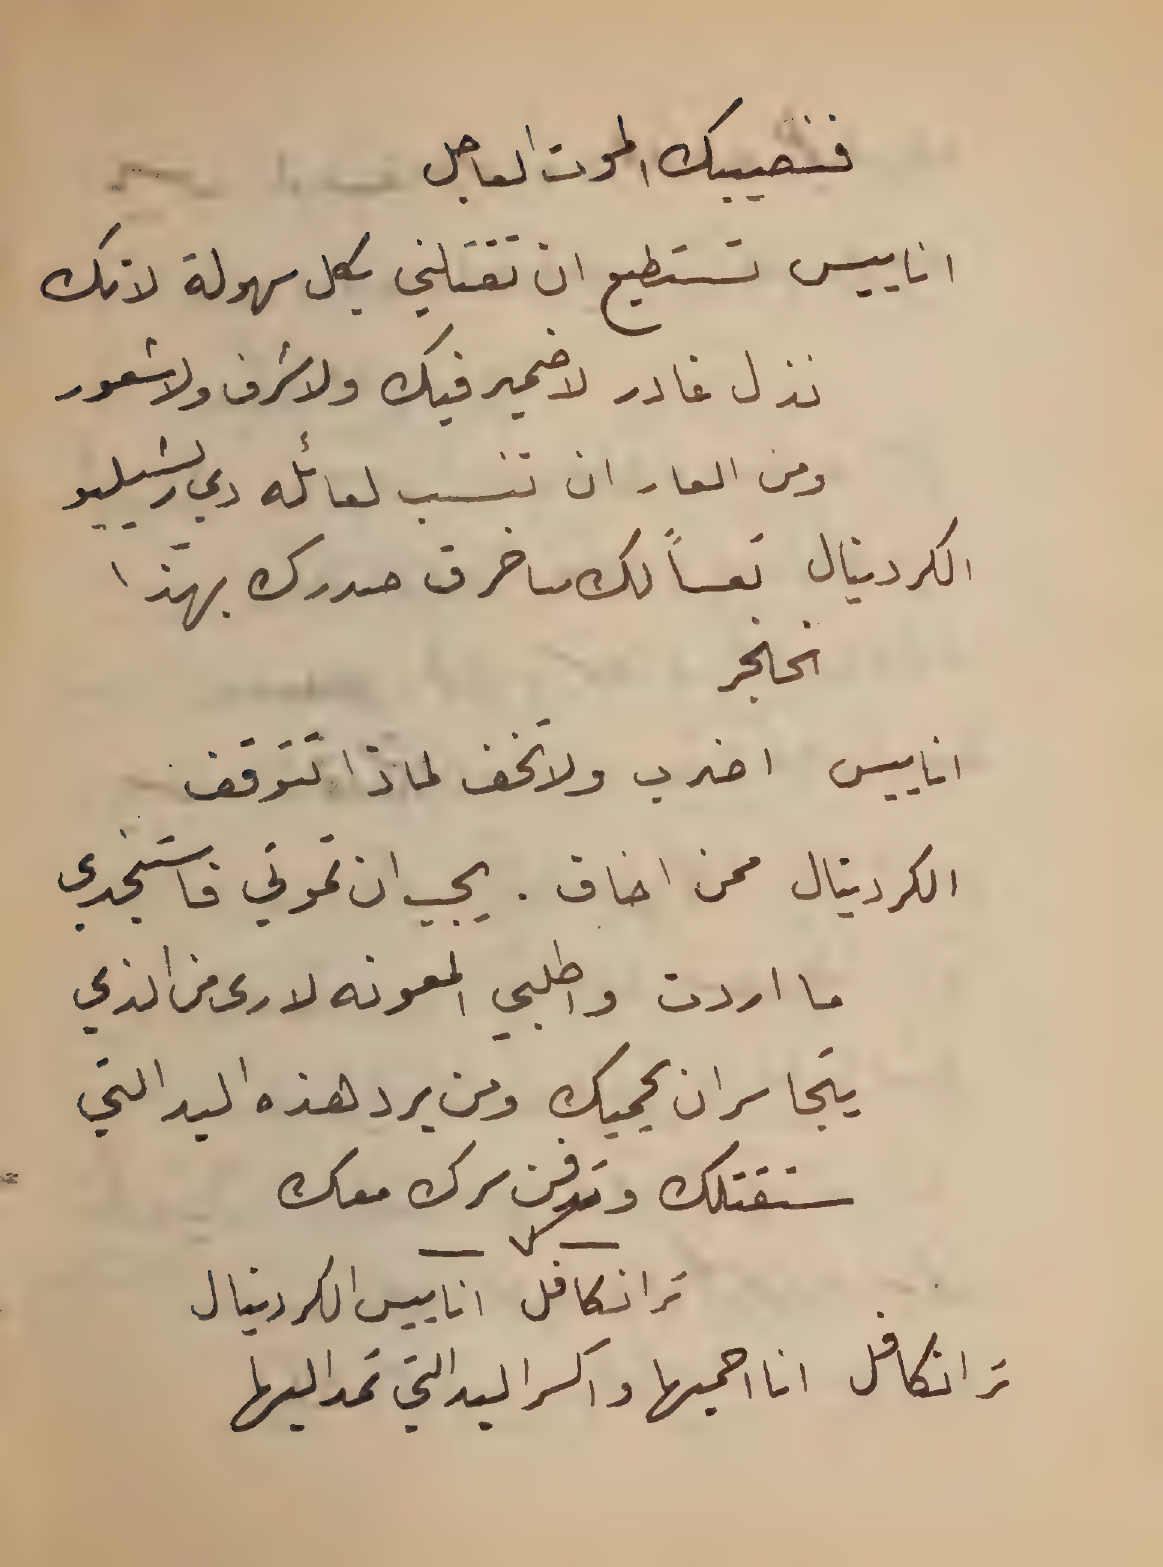 فنصيبك الموت العاجل
اناييس تستطيع ان تقتلني بكل سهولة لانك
نذل غادر لا ضمير فيك ولا شرف ولا شعور
ومن العار ان تنسب لعائله دي ريشيليو
الكردينال تعساً لك ساخرق صدرك بهذا
الخنجر
اناييس اضرب ولا تخف لماذا تتوقف
الكردينال ممن اخاف . يجب ان تموتي فاستنجدي
ما اردت واطلبي المعونه لارى من الذي
يتجاسر ان يحميك ومن يرد هذه اليد التي
ستقتلك وتدفن سرك معك
ترانكافل اناييس الكردينال
ترانكافل انا احميها واكسر اليد التي تمد اليها